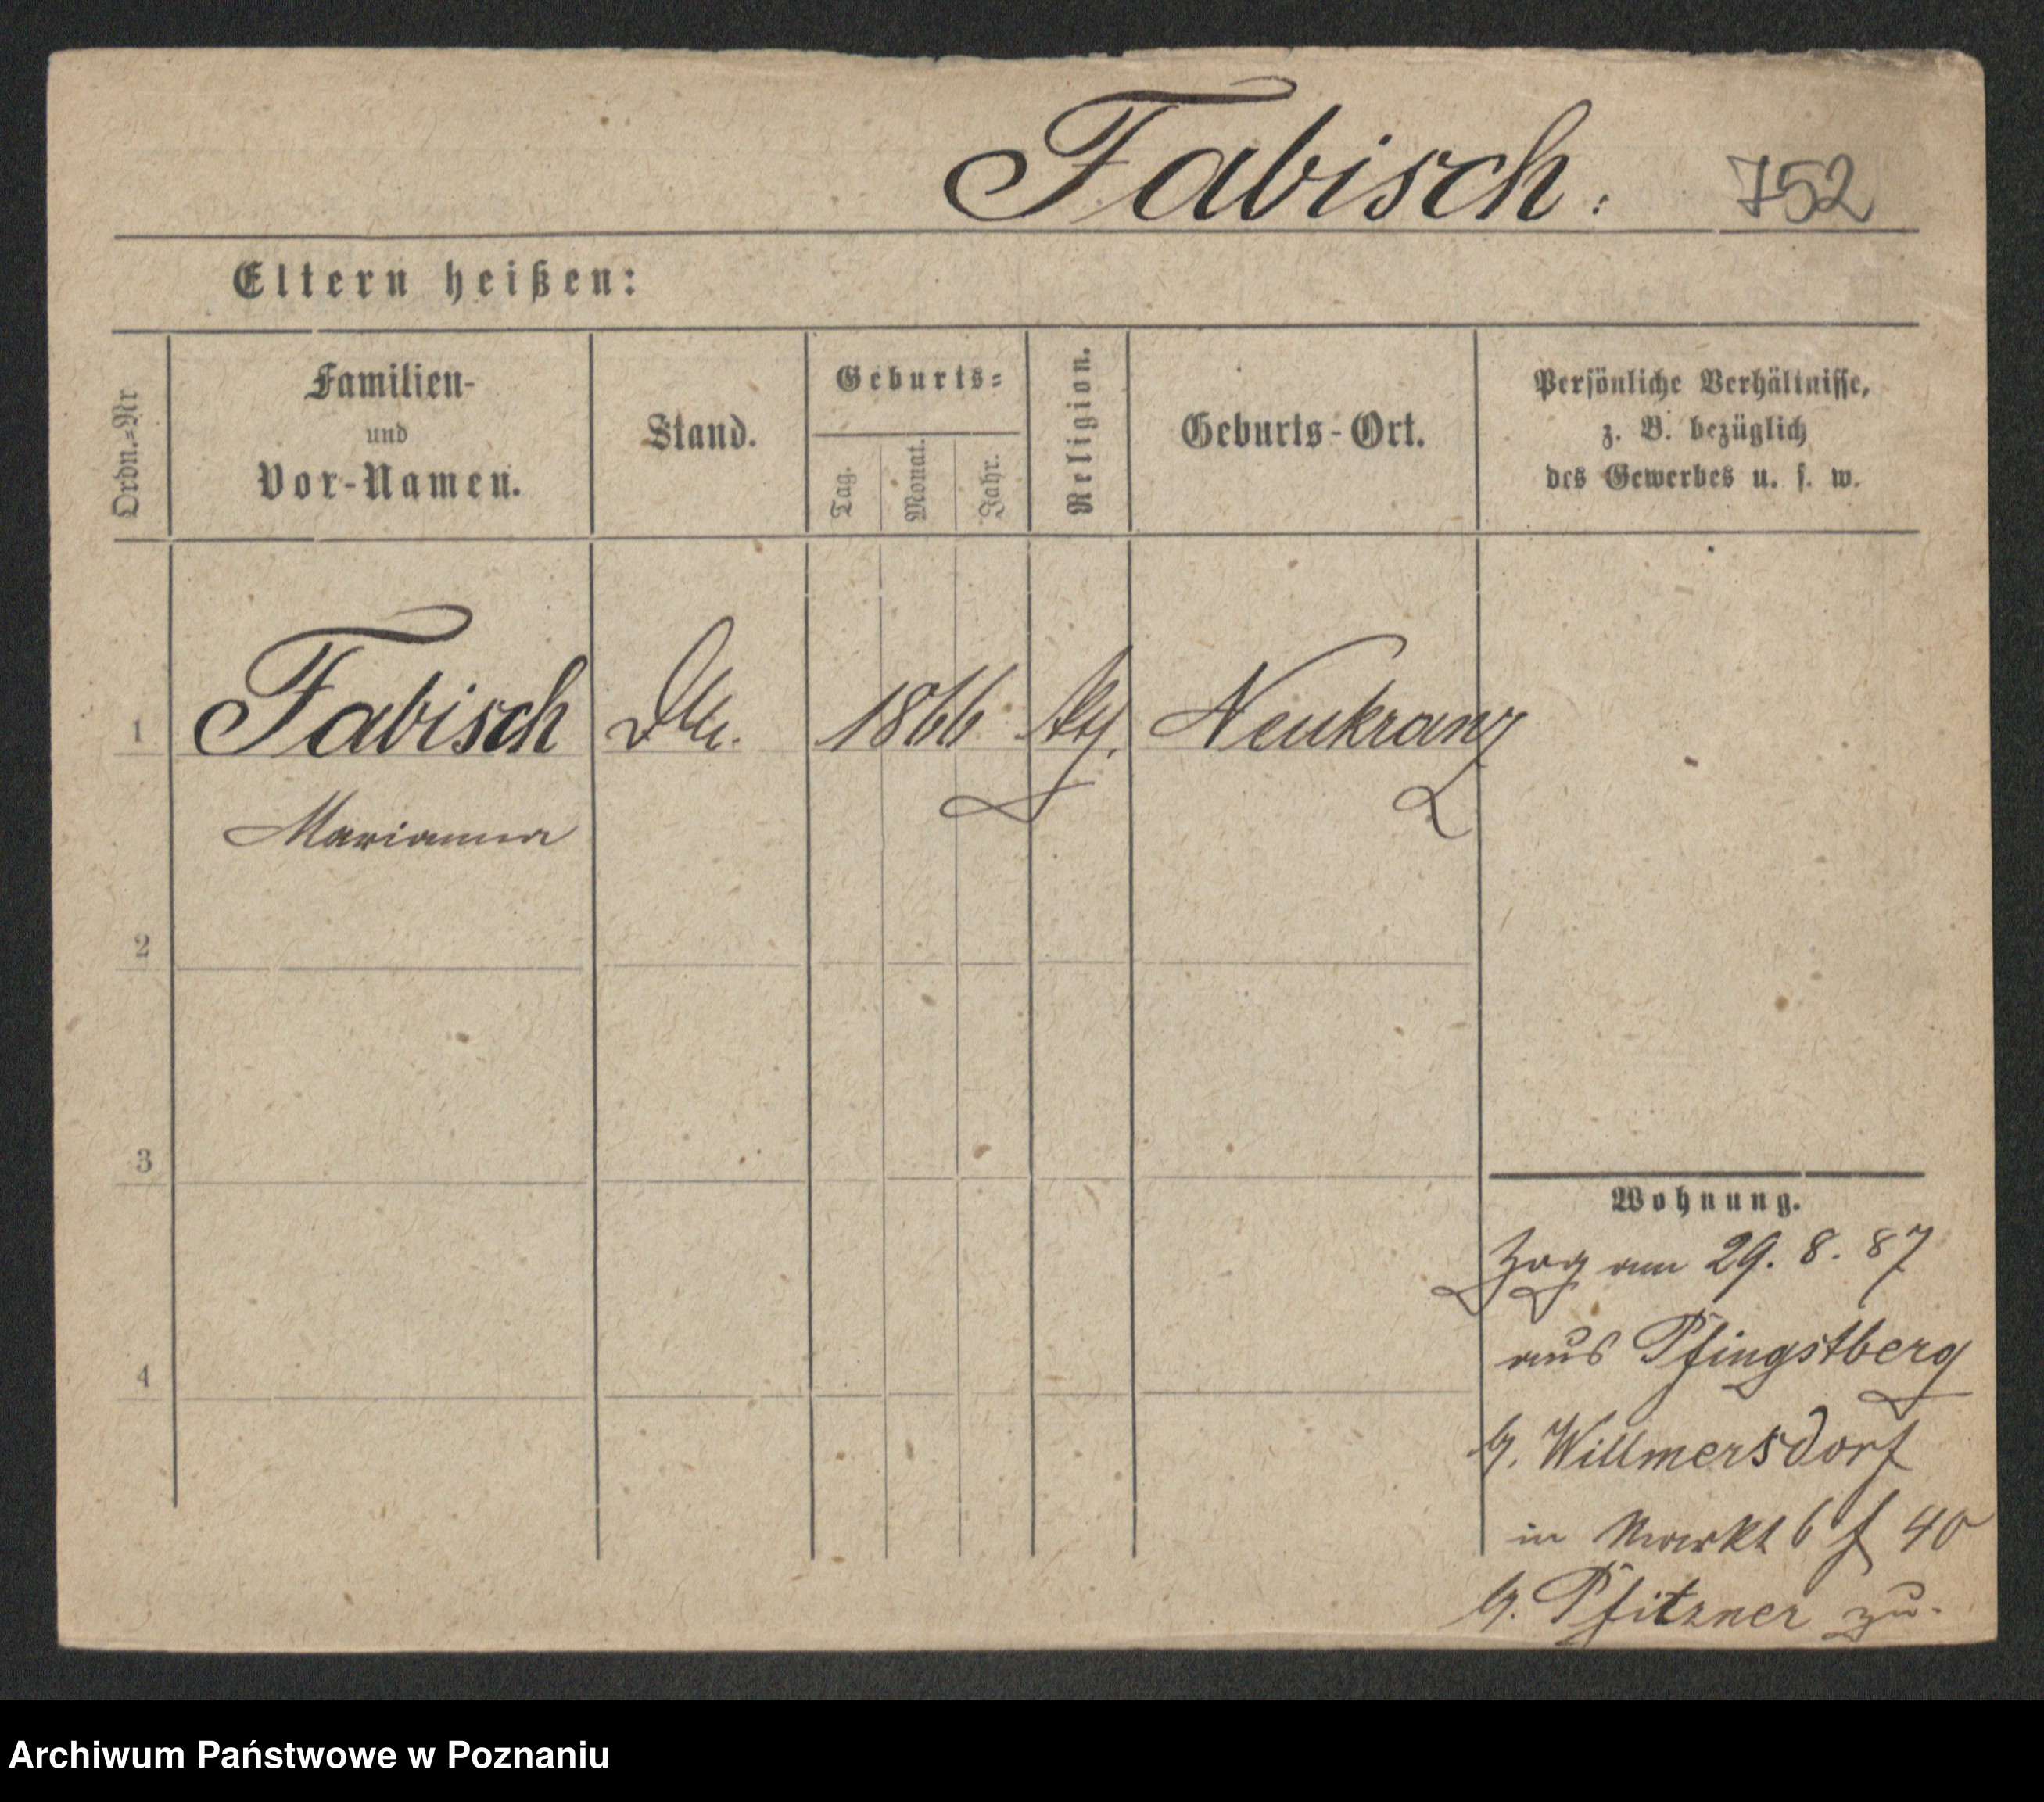 Fabisch. 752
Eltern heißen:
Ordn.=Nr
Familien-
und
Vor-Namen.
Stand.
Geburts=
Tag.
Monat.
Jahr.
Religion.
Geburts-Ort.
Persönliche Verhältnisse,
z. B. bezüglich
des Gewerbes u. s. w.
1 Fabisch 1866 Neukranz
Marianna
2
3
4
Wohnung.
Zog am 29. 8. 87
aus Pfingstberg
b. Willmersdorf
in Markt 6 40
b. Pfitzner zu.
Archiwum Państwowe w Poznaniu